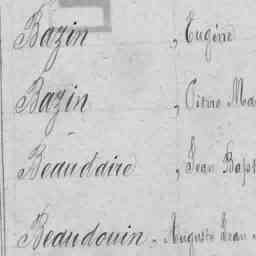 Bazin , Eugène
Bazin , Pierre Ma
Beaudaire , Jean Bapt
Beaudouin , Auguste Jean